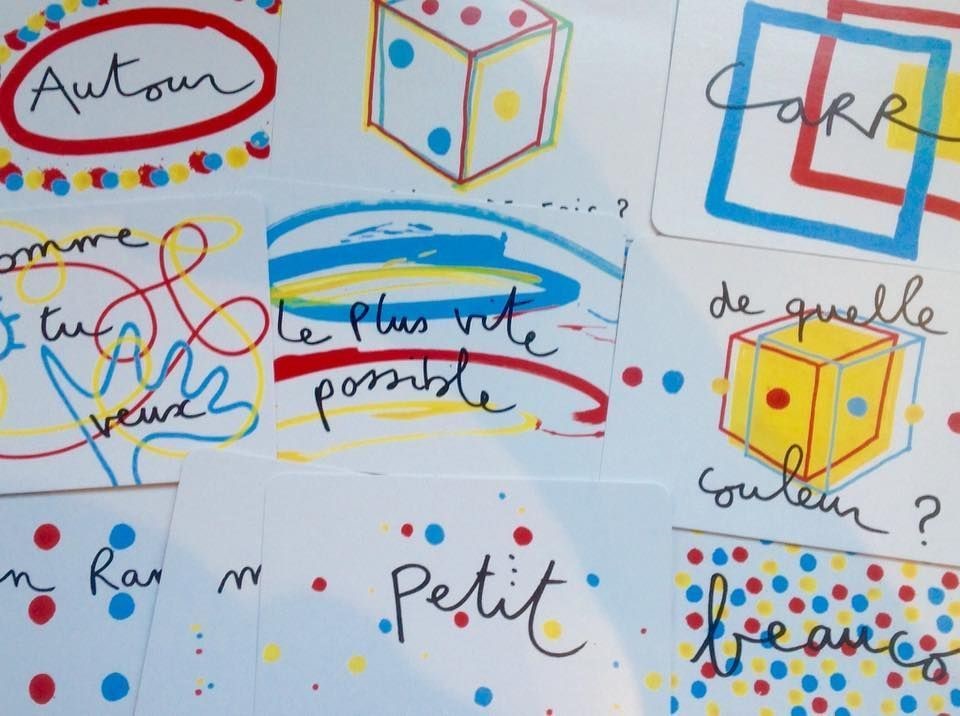 Autour
?
CARR
omme
tu
veux
Le plus vite
possible
de quelle
couleur ?
n Ran
m
Petit
beauco